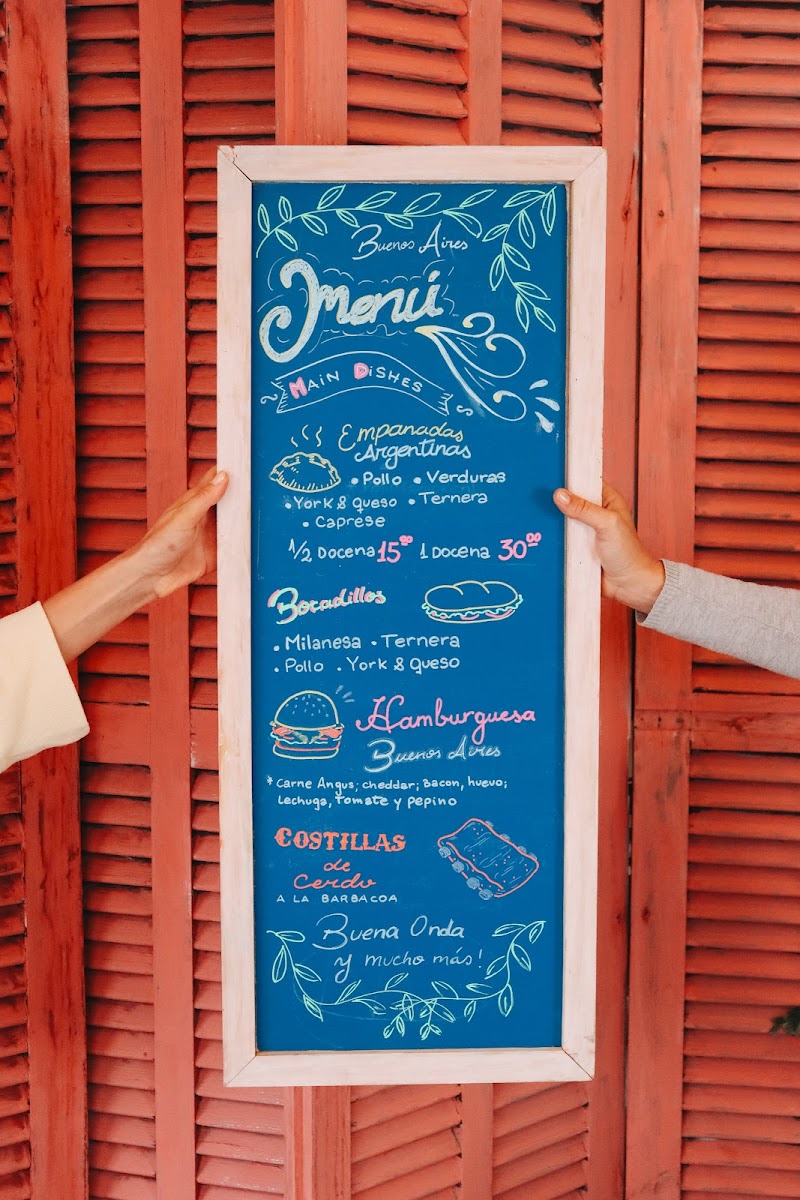 Buenos Aires
Menú
MAIN DISHES
Empanadas
Argentinas
• Pollo • Verduras
• York & queso • Ternera
• Caprese
1/2 Docena 15⁰⁰ 1 Docena 30⁰⁰
Bocadillos
• Milanesa • Ternera
• Pollo • York & queso
Hamburguesa
Buenos Aires
* Carne Angus; cheddar; Bacon, huevo;
Lechuga, Tomate y pepino
COSTILLAS
de
Cerdo
A LA BARBACOA
Buena Onda
y mucho más!